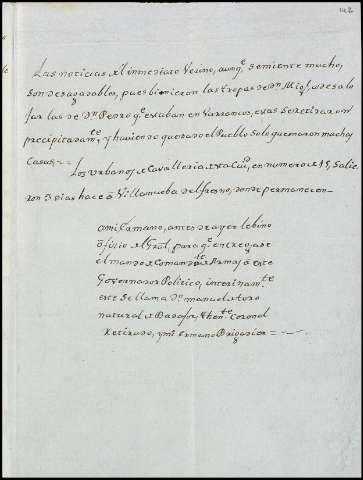 142
Las noticias del inmediato Vecino, aunq.e se miente mucho,
son desagradables, pues binieron las tropas de Dn. Mig.l, a desalo
jar las de Dn. Pedro q.e estaban en Varrancos, estas se retiraron
precipitaram.te, y haviendo quedado el Pueblo solo quemaron muchas
Casas. = =
Los Urbanos de Cavalleria de esta Ciu.d, en numero de 15, Salie
ron 3 dias hace á Villanueba del fresno, donde permanecen.
A mi Ermano, antes de ayer le bino
oficio del Gral, para q.e entregase
el mando de Comand.te de Armas á este
Governador Politico, interinam.te
este se llama Dn. Manuel
natural de Badajoz, Then.te Coronel
Retirado, y mi Ermano Brigadier = ---